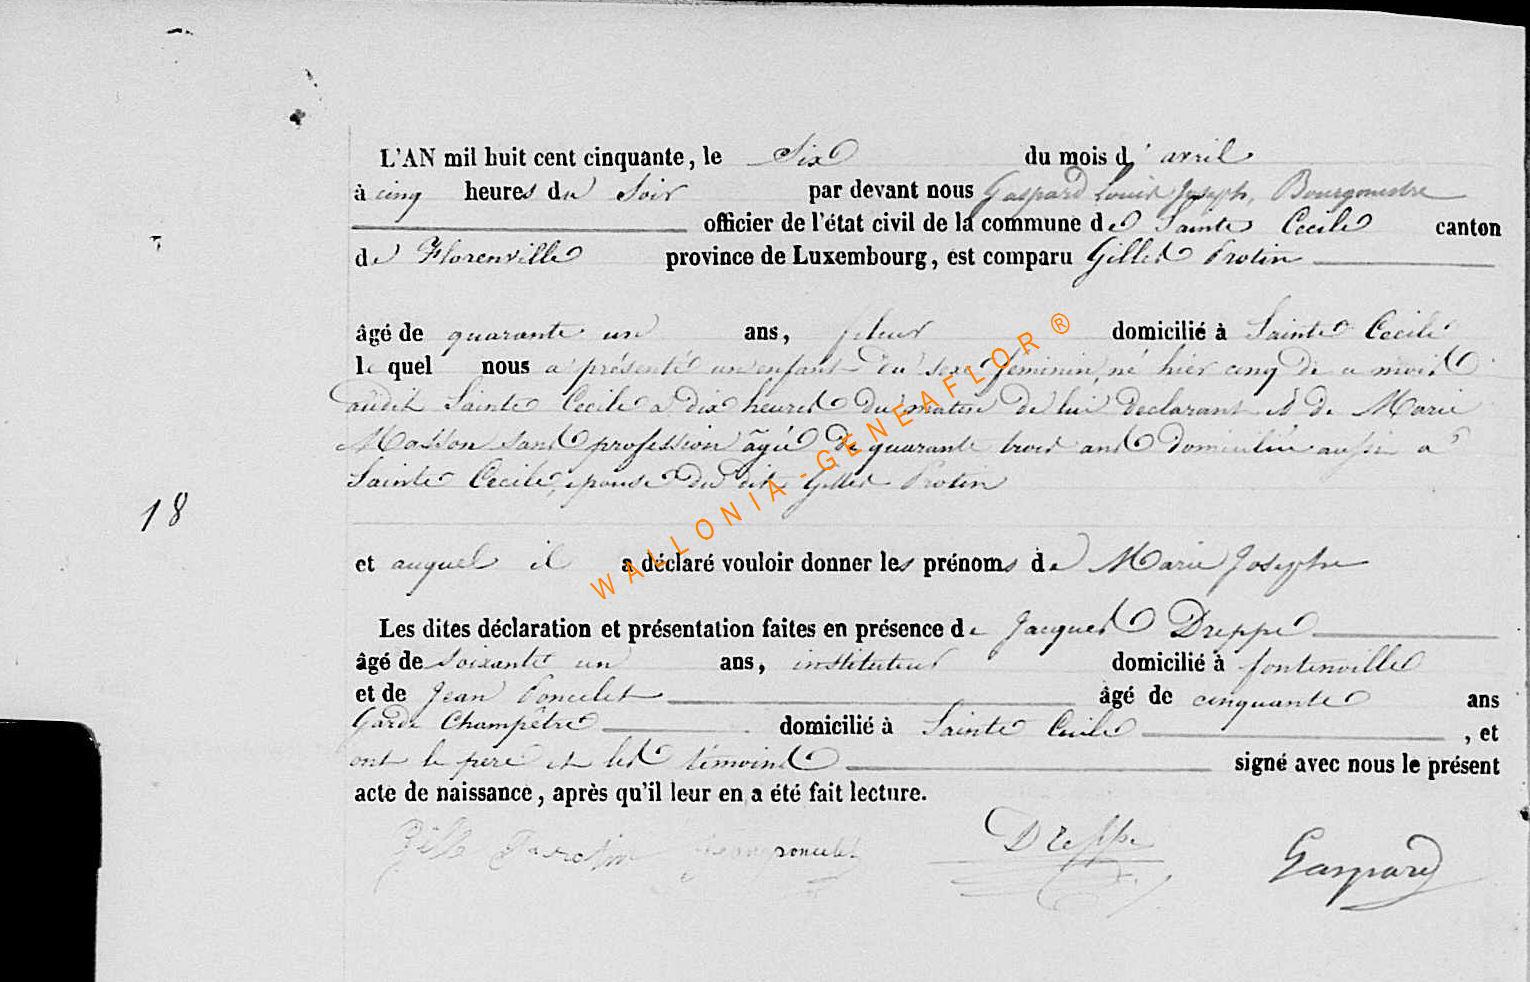 L'AN mil huit cent cinquante, le Six du mois d' avril
à cinq heures du Soir par devant nous Gaspard Louis Joseph, Bourgmestre
officier de l'état civil de la commune de Sainte Cecile canton
de Florenville province de Luxembourg, est comparu Gilles Protin
âgé de quarante un ans, domicilié à Sainte Cecile
le quel nous a présenté un enfant du sexe féminin, né hier cinq de ce mois
audit Sainte Cecile a dix heures du matin de lui declarant et de Marie
Masson sans profession agée de quarante trois ans domiciliée aussi a
Sainte Cecile, epouse du dit Gilles Protin
18
et auquel il a déclaré vouloir donner les prénoms de Marie Josephe
Les dites déclaration et présentation faites en présence de Jacques Dreppe
âgé de soixante un ans, instituteur domicilié à fontenoille
et de Jean Poncelet âgé de cinquante ans
Garde Champêtre domicilié à Sainte Cecile, et
ont le pere et les témoins signé avec nous le présent
acte de naissance, après qu'il leur en a été fait lecture.
Jean poncelet Dreppe Gaspard
WALLONIA-GENEAFLOR®